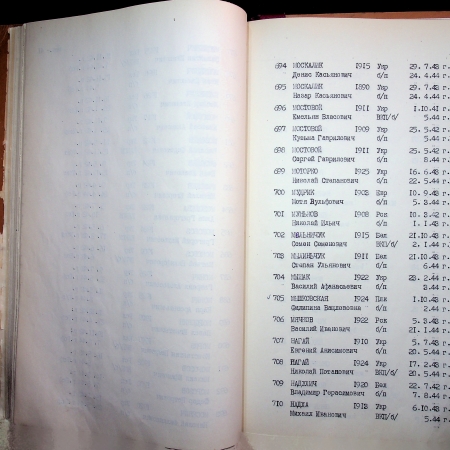 694 МОСКАЛИК 1915 Укр 29. 7.43 г.
Денис Касьянович б/п 24. 4.44 г.
695 МОСКАЛИК 1890 Укр 29. 7.43 г.
Назар Касьянович б/п 24. 4.44 г.
696 МОСТОВОЙ 1911 Укр 1.10.41 г.
Емельян Власович ВКП/б/ 5.44 г.
697 МОСТОВОЙ 1909 Укр 25. 5.42 г.
Кузьма Гаврилович б/п 5.44 г.
698 МОСТОВОЙ 1911 Укр 25. 5.42 г.
Сергей Гаврилович б/п 8.44 г.
699 МОТОРКО 1925 Укр 16. 6.43 г.
Николай Степанович б/п 22. 5.44 г.
700 МУДРИК 1903 Евр 10. 9.43 г.
Мотя Вульфович б/п 5. 3.44 г.
701 1908 Рос 10. 3.42 г.
Николай Ильич б/п 1. 1.43 г.
702 МЕЛЬНИЧУК 1915 Бел 21.10.43 г.
Семен Семенович ВКП/б/ 2. 1.44 г.
703 1911 Бел 21.10.43 г.
Степан Ульянович б/п 6.44 г.
704 1922 Укр 23. 2.44 г.
Василий Афанасьевич б/п 3.44 г.
705 МЫШКОВСКАЯ 1924 Плк 1.10.43 г.
Филипина Вацлововна б/п 2.44 г.
706 1922 Рос 5. 3.43 г.
Василий Иванович б/п 21. 1.44 г.
707 НАГАЙ 1910 Укр 5. 7.43 г.
Евгений Анисимович б/п 20. 5.44 г.
708 НАГАЙ 1924 Укр 17. 2.43 г.
Николай Потапович ВКП/б/ 20. 5.44 г.
709 1920 Бел 22. 7.42 г.
Владимир Герасимович б/п 7. 8.44 г.
710 НАДХА 1913 Укр 6.10.43 г.
Михаил Иванович ВКП/б/ 5.44 г.